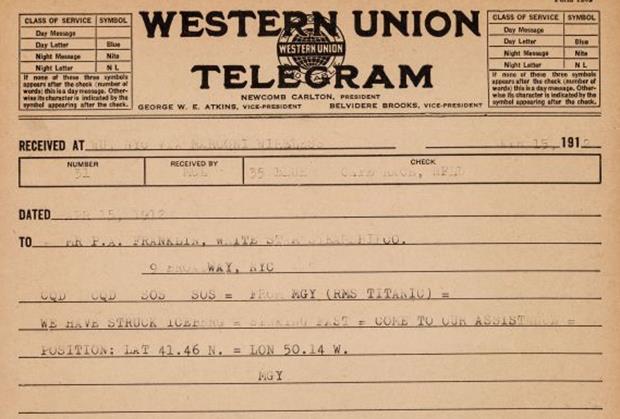 CLASS OF SERVICE SYMBOL
Day Message
Day Letter Blue
Night Message Nite
Night Letter N L
If none of these three symbols
appears after the check (number of
words) this is a day message. Other-
wise its character is indicated by the
symbol appearing after the check.
WESTERN UNION
WESTERN UNION
TELEGRAM
NEWCOMB CARLTON, PRESIDENT
GEORGE W. E. ATKINS, VICE-PRESIDENT BELVIDERE BROOKS, VICE-PRESIDENT
CLASS OF SERVICE SYMBOL
Day Message
Day Letter Blue
Night Message Nite
Night Letter N L
If none of these three symbols
appears after the check (number of
words) this is a day message. Other-
wise its character is indicated by the
symbol appearing after the check.
RECEIVED AT NYC VIA MARCONI WIRELESS APR 15, 1912
NUMBER RECEIVED BY CHECK
31 35 BLUE CAPE RACE, NFLD
DATED APR 15, 1912
TO MR P.A. FRANKLIN, WHITE STAR
9 BROADWAY, NYC
CQD CQD SOS SOS = FROM MGY (RMS TITANIC) =
WE HAVE STRUCK ICEBERG = SINKING FAST = COME TO OUR ASSISTANCE =
POSITION: LAT 41.46 N. = LON 50.14 W.
MGY